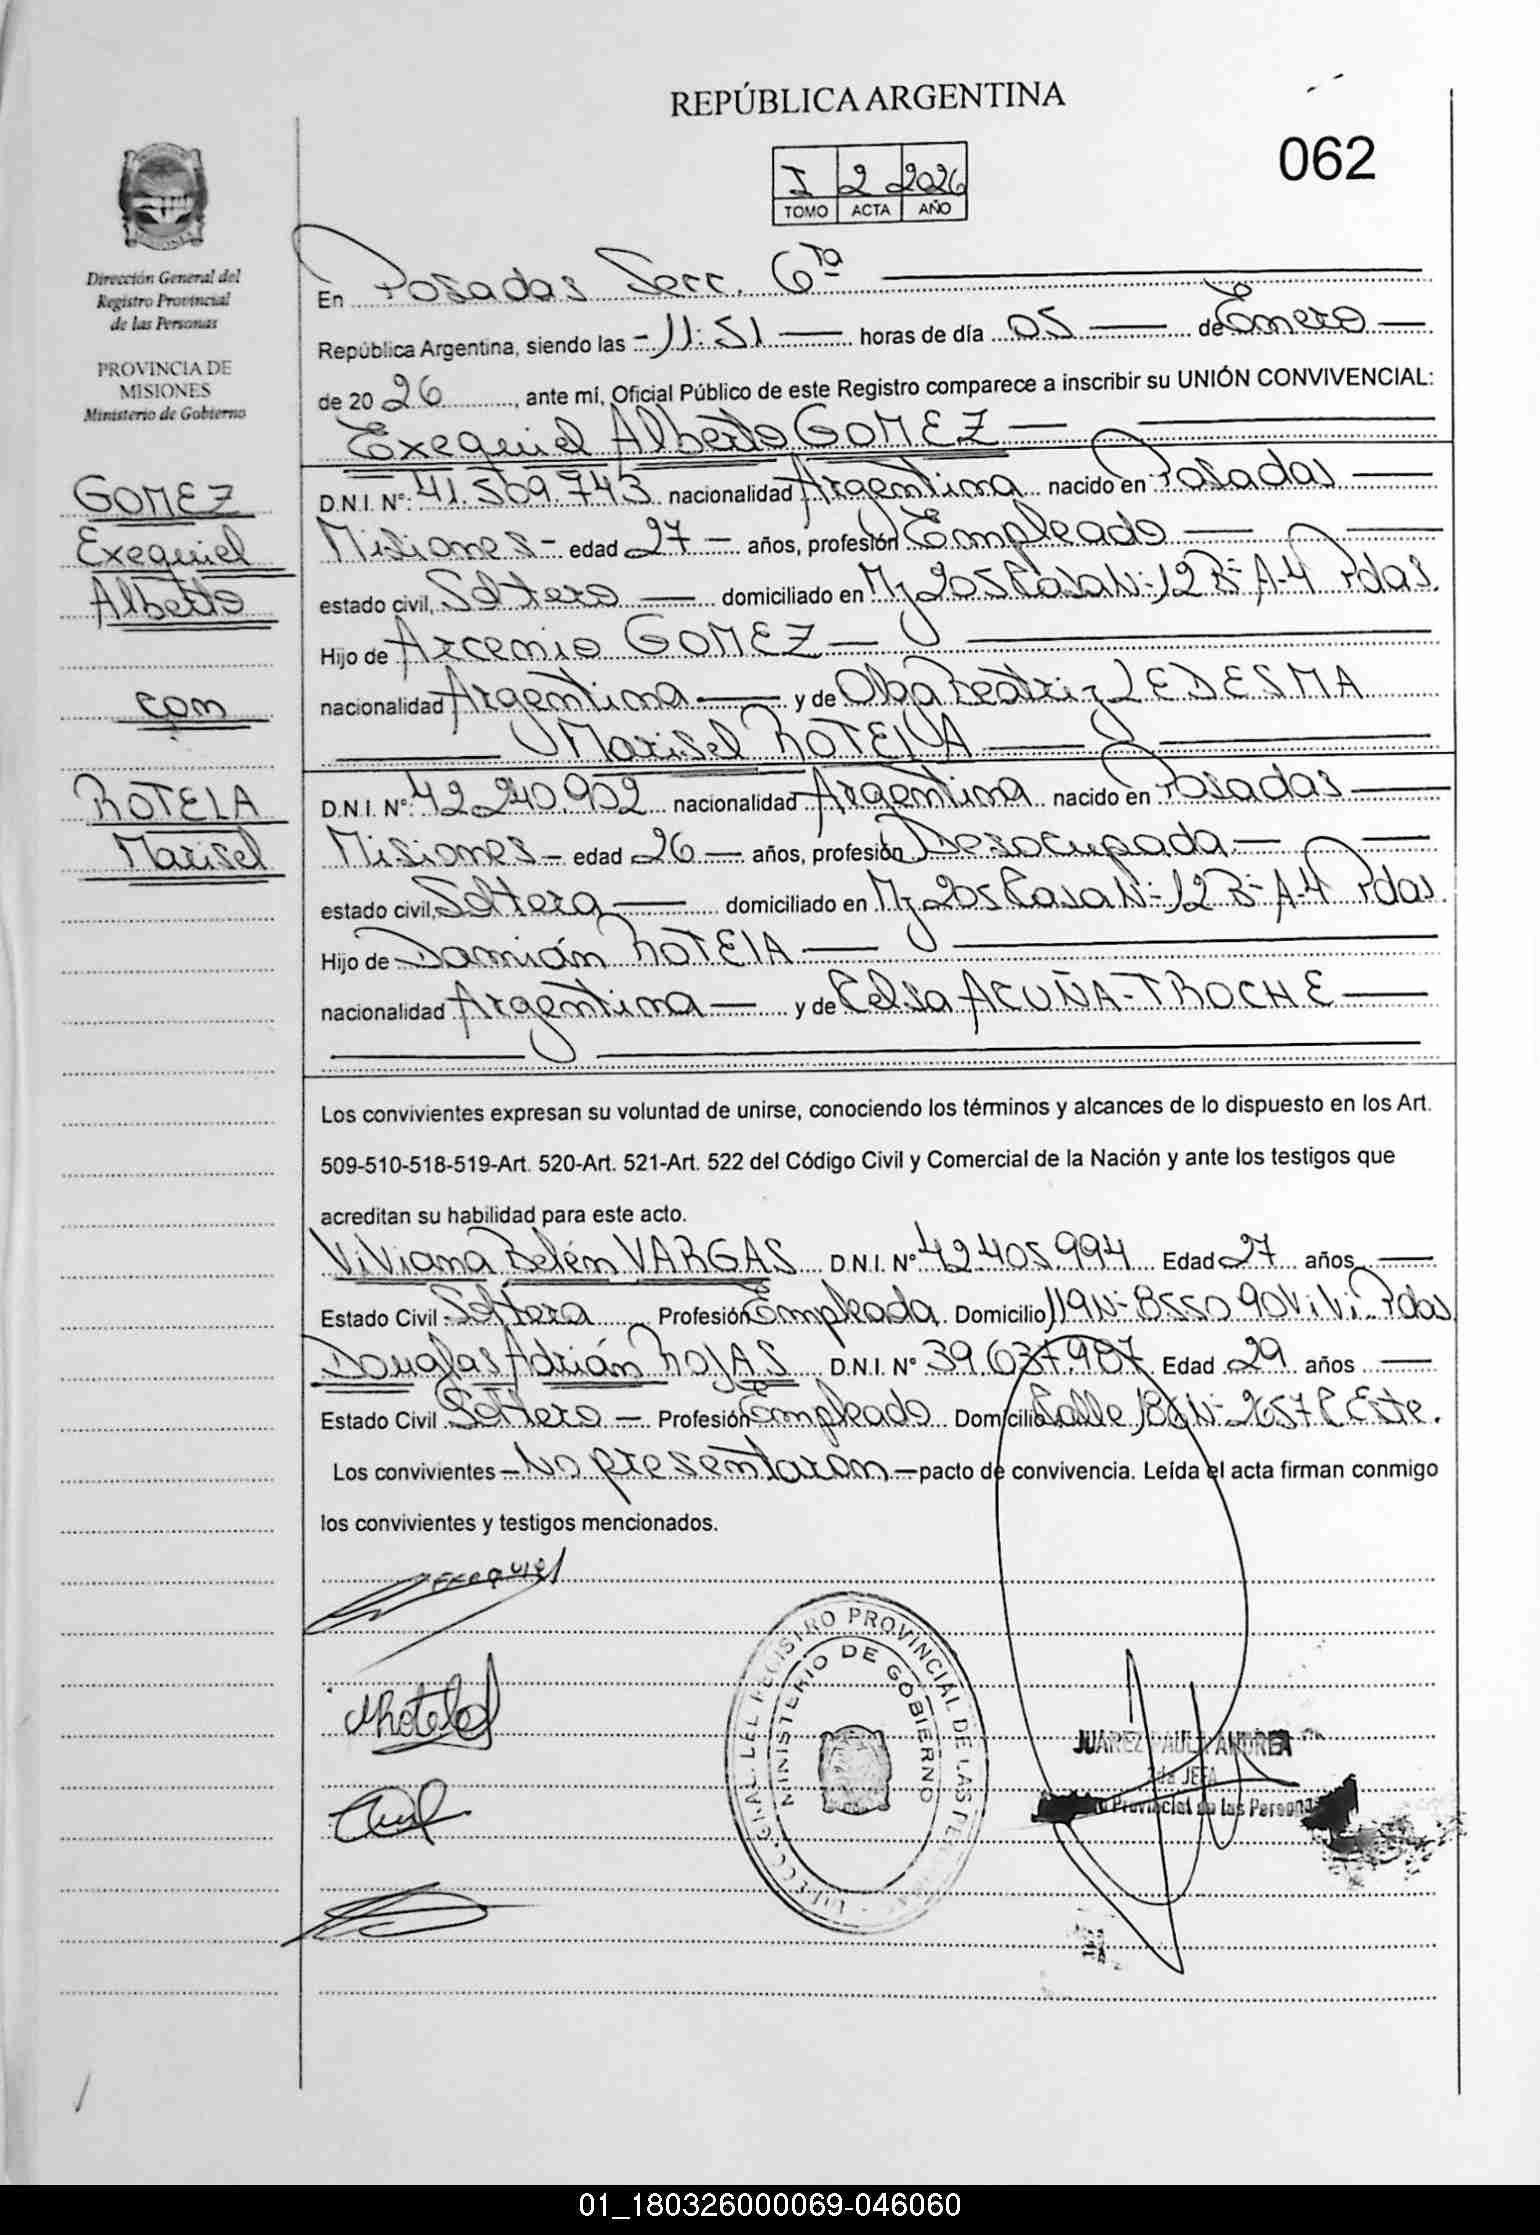 REPÚBLICA ARGENTINA
062
I 2 2026
TOMO ACTA AÑO
Dirección General del
Registro Provincial
de las Personas
PROVINCIA DE
MISIONES
Ministerio de Gobierno
GOMEZ
Exequiel
Alberto
con
ROTELA
Marisel
En Posadas Secc. 6ta
República Argentina, siendo las - 11:51 — horas de día 05 — de Enero —
de 20 26, ante mí, Oficial Público de este Registro comparece a inscribir su UNIÓN CONVIVENCIAL:
Exequiel Alberto GOMEZ —
D.N.I. Nº: 41.569.743 nacionalidad Argentina nacido en Posadas —
Misiones - edad 27 - años, profesión Empleado —
estado civil, Soltero — domiciliado en Mz 205 Casa N- 12 Bº A-4 Pdas.
Hijo de Arcenio GOMEZ —
nacionalidad Argentina — y de Olga Beatriz LEDESMA
— Marisel ROTELA —
D.N.I. Nº: 42.240.902 nacionalidad Argentina nacido en Posadas —
Misiones - edad 26 — años, profesión Desocupada —
estado civil, Soltera — domiciliado en Mz 205 Casa N- 12 Bº A-4 Pdas.
Hijo de Damián ROTELA —
nacionalidad Argentina — y de Celsa ACUÑA-TROCHE —
Los convivientes expresan su voluntad de unirse, conociendo los términos y alcances de lo dispuesto en los Art.
509-510-518-519-Art. 520-Art. 521-Art. 522 del Código Civil y Comercial de la Nación y ante los testigos que
acreditan su habilidad para este acto.
Viviana Belén VARGAS D.N.I. Nº 42.405.994 Edad 27 años —
Estado Civil Soltera Profesión Empleada Domicilio 119 N- 8550 90 Vivi. Pdas
Douglas Adrián ROJAS D.N.I. Nº 39.637.987 Edad 29 años —
Estado Civil Soltero — Profesión Empleado Domicilio Calle 186 N- 2657 C. Este.
Los convivientes — No presentaron — pacto de convivencia. Leída el acta firman conmigo
los convivientes y testigos mencionados.
Exequiel
MRotela
DIRECC. GRAL. DEL REGISTRO PROVINCIAL DE LAS
MINISTERIO DE GOBIERNO
JUAREZ PAULA ANDREA
JEFA
Provincial de las Personas
01_180326000069-046060